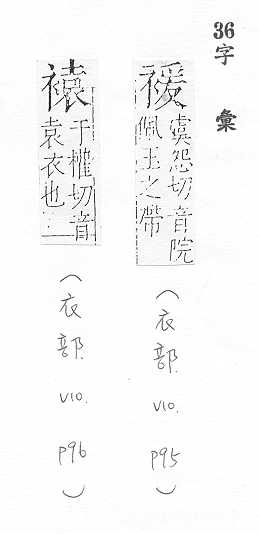 36字 彙
褑 虞怨切音院
佩玉之帶
(衣部. V10. P95)
褤 于權切音
袁衣也
(衣部. V10. P96)